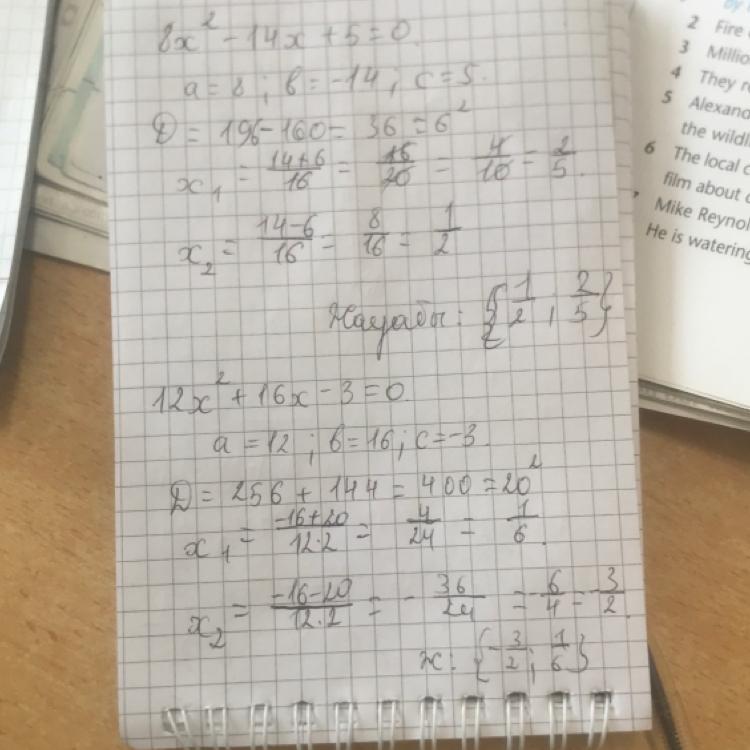 8x² - 14x + 5 = 0
a = 8 ; b = -14 ; c = 5.
D = 196 - 160 = 36 = 6²
x₁ = (14+6)/16 = 16/20 = 4/10 = 2/5.
x₂ = (14-6)/16 = 8/16 = 1/2
: {1/2 ; 2/5}
12x² + 16x - 3 = 0
a = 12 ; b = 16 ; c = -3
D = 256 + 144 = 400 = 20²
x₁ = (-16+20)/(12·2) = 4/24 = 1/6.
x₂ = (-16-20)/(12·2) = -36/24 = -6/4 = -3/2.
ж: {-3/2 ; 1/6}
by
2 Fire
3 Millio
4 They r
5 Alexan
the wildli
6 The local c
film about
Mike Reynol
He is watering